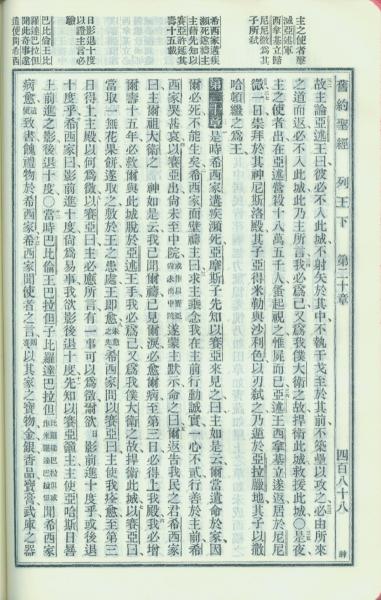 主之使者擊
滅亞述軍
西拿基立歸
尼尼微爲其
子所弒
希西家遘疾
瀕死遂禱主
主藉先知以
賽亞許延其
壽十五載
日影退十度
以證主言必
驗
巴比倫王比
羅達巴拉但
聞此奇事遂
舊約聖經 列王下 第二十章 四百八十八
故主論亞述王曰彼必不入此城不射矢於其中不執干戈至於其前不築壘以攻之必由所來
之道而返必不入此城此乃主所言我必爲己又爲我僕大衛之故捍衛此城救援此城〇是夜
主之使者出在亞述營殺十八萬五千人蚤起視之惟屍而已亞述王西拿基立遂返居於尼尼
微一日正拜於其神尼斯洛殿其子亞得米勒與沙利色以刃弒之乃遁於亞拉臘地其子以撒
哈頓繼之爲王
第二十章 是時希西家遘疾瀕死亞摩斯子先知以賽亞來見之曰主如是云爾當遺命於家因
爾必死不能生矣希西家面壁禱主曰求主垂念我在主前行動誠實一心不貳行善於主前希
西家哭甚哀以賽亞出尙未至中院遂蒙主默示命之曰爾返告我民之君希西家
曰主爾祖大衛之 神如是云我已聞爾禱已見爾淚必愈爾病至第三日必得上我殿我必增
爾壽十五年必救爾與此城脫於亞述王手我必爲己又爲我僕大衛之故捍衛此城以賽亞曰
當取一無花果餅遂取之敷於王之患處王卽愈希西家問以賽亞曰主使我痊愈至第三
日得上主殿以何爲徵以賽亞曰主必應所言有一事可以爲徵爾欲日影前進十度乎或後退
十度乎希西家曰影前進十度尙爲易事我欲影後退十度先知以賽亞籲主主使亞哈斯日晷
上前進之影後退十度〇當時巴比倫王巴拉但子比羅達巴拉但聞希西家
病愈遂致書餽禮物於希西家希西家聞使者之言以其家之寶物金銀香品寶膏武庫之器